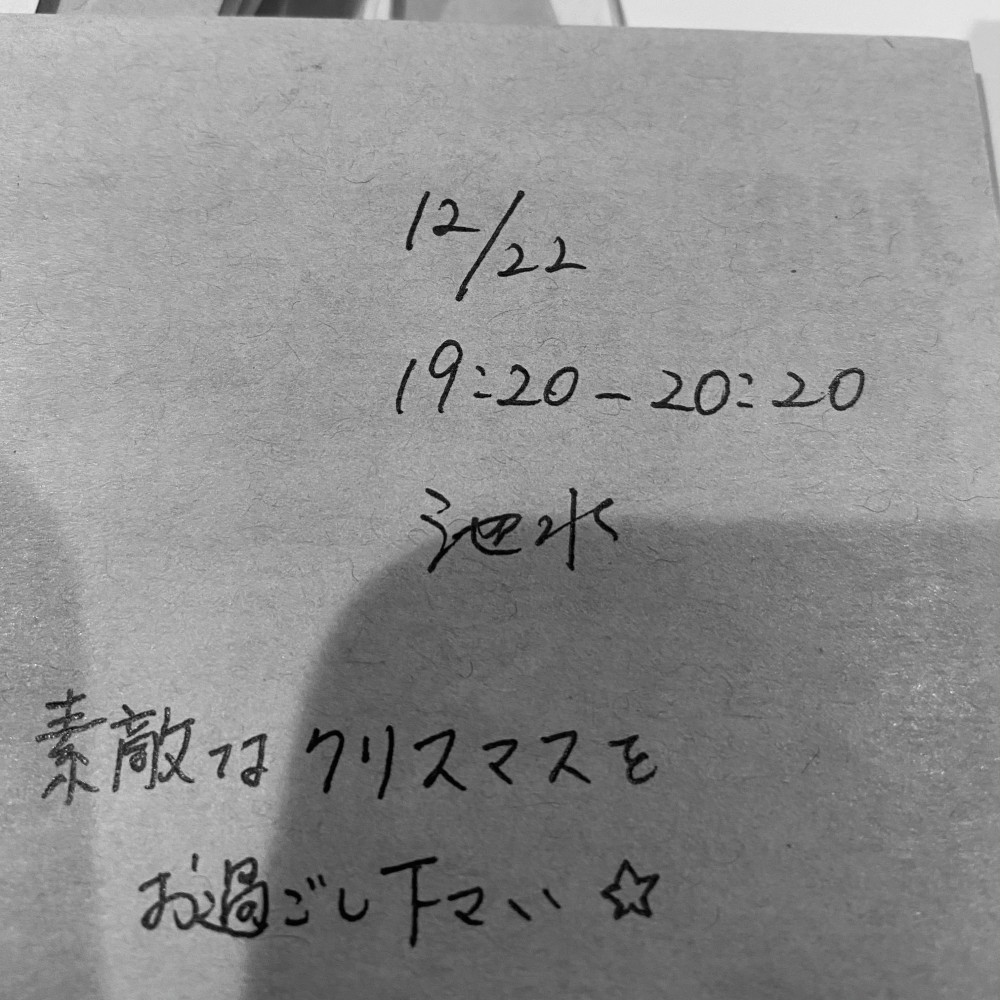 12/22
19:20-20:20
池水
素敵なクリスマスを
お過ごし下さい☆